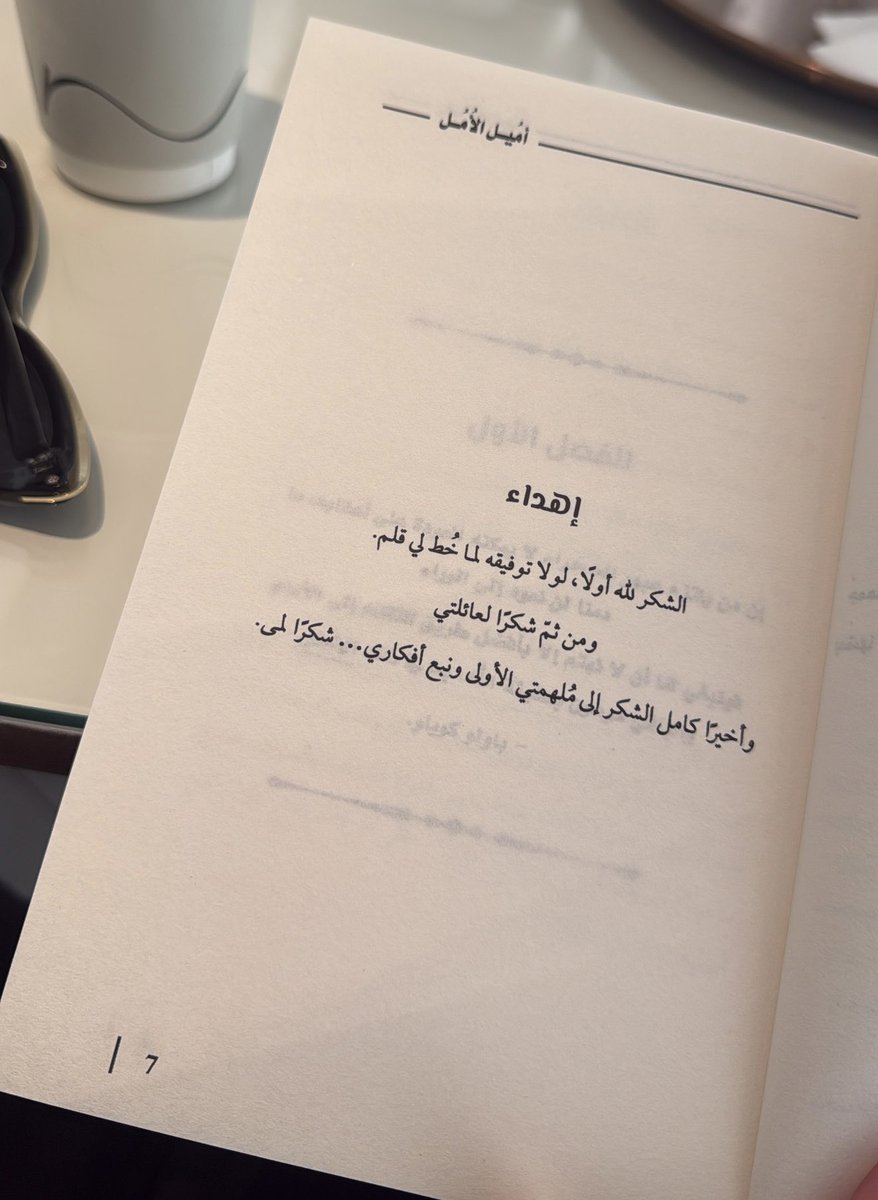 أُميل الأُمُل
إهداء
الشكر لله أولًا، لولا توفيقه لما خُط لي قلم.
ومن ثمّ شكرًا لعائلتي
وأخيرًا كامل الشكر إلى مُلهمتي الأولى ونبع أفكاري... شكرًا لمى.
7